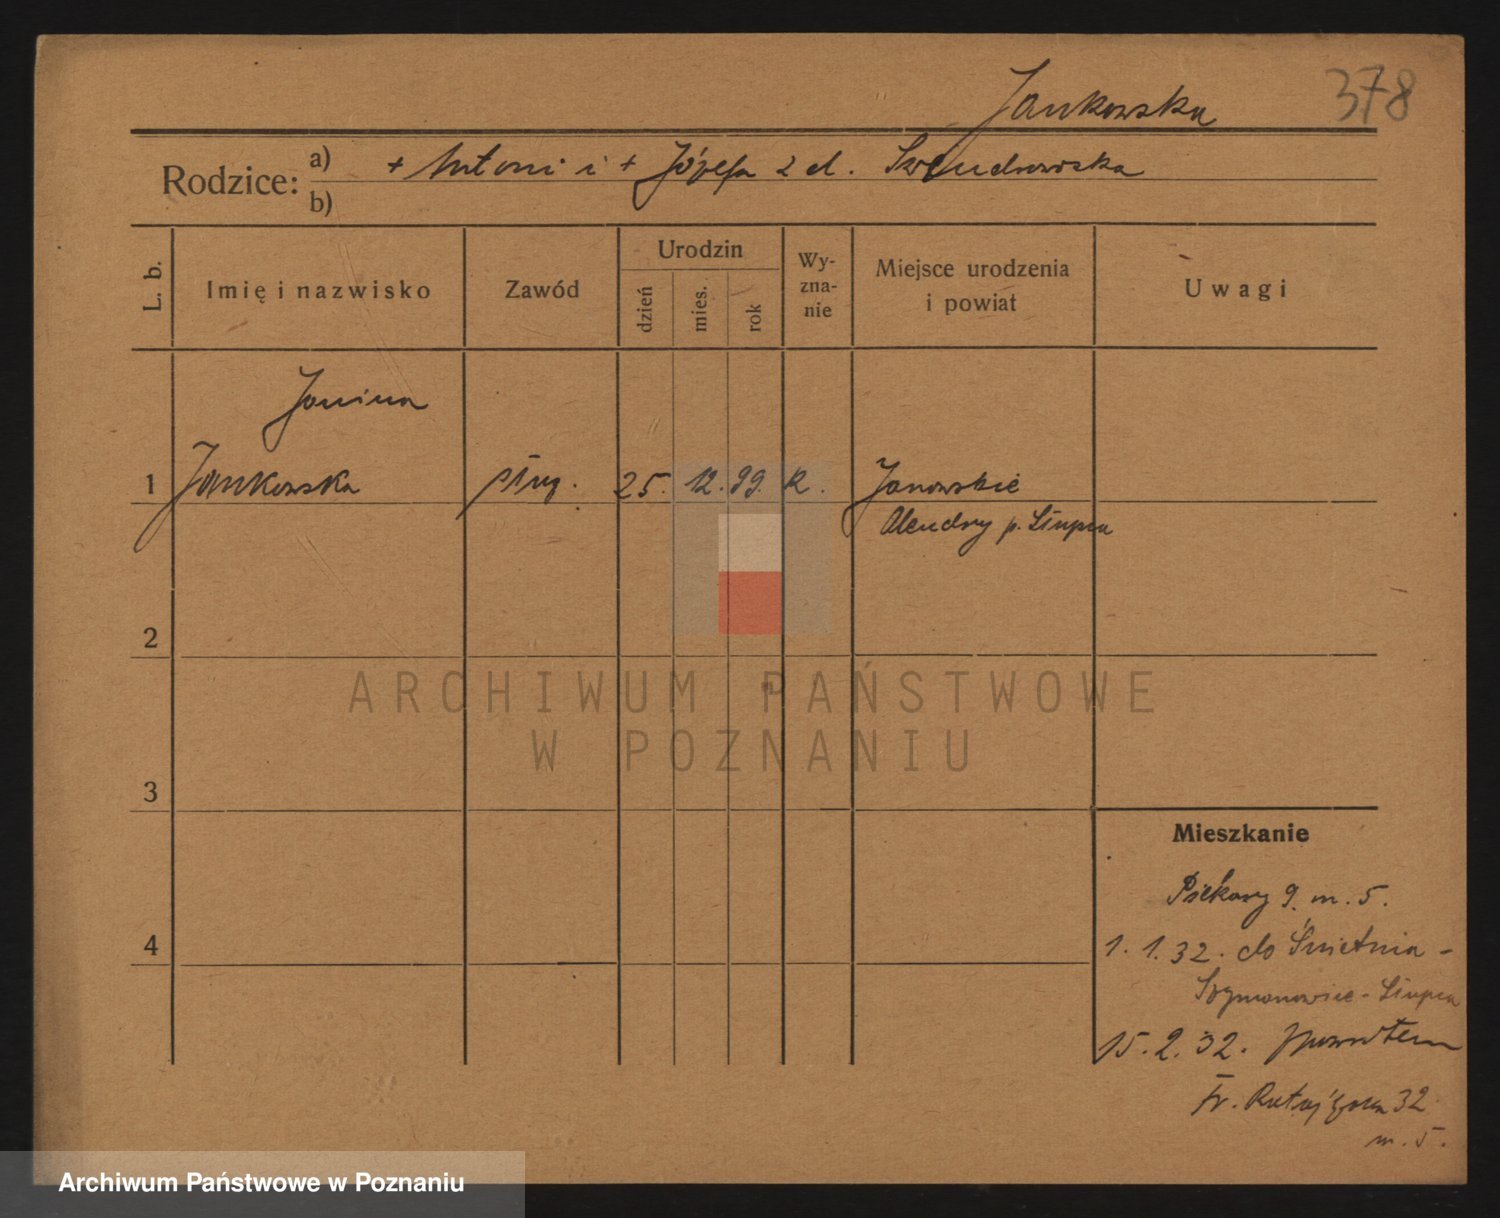 Jankowska 378
Rodzice: a) + Antoni i + Józefa z d.
b)
L. b. Imię i nazwisko Zawód Urodzin dzień mies. rok Wy-zna-nie Miejsce urodzenia i powiat Uwagi
Janina
1 Jankowska służ. 25. 12. 99. k. Janowskie
Olendry p. Słupca
2
3
4
Mieszkanie
Piekary 9. m. 5.
1. 1. 32. do
Słupca
15. 2. 32.
Fr. Ratajczaka 32
m. 5.
ARCHIWUM PAŃSTWOWE
W POZNANIU
Archiwum Państwowe w Poznaniu